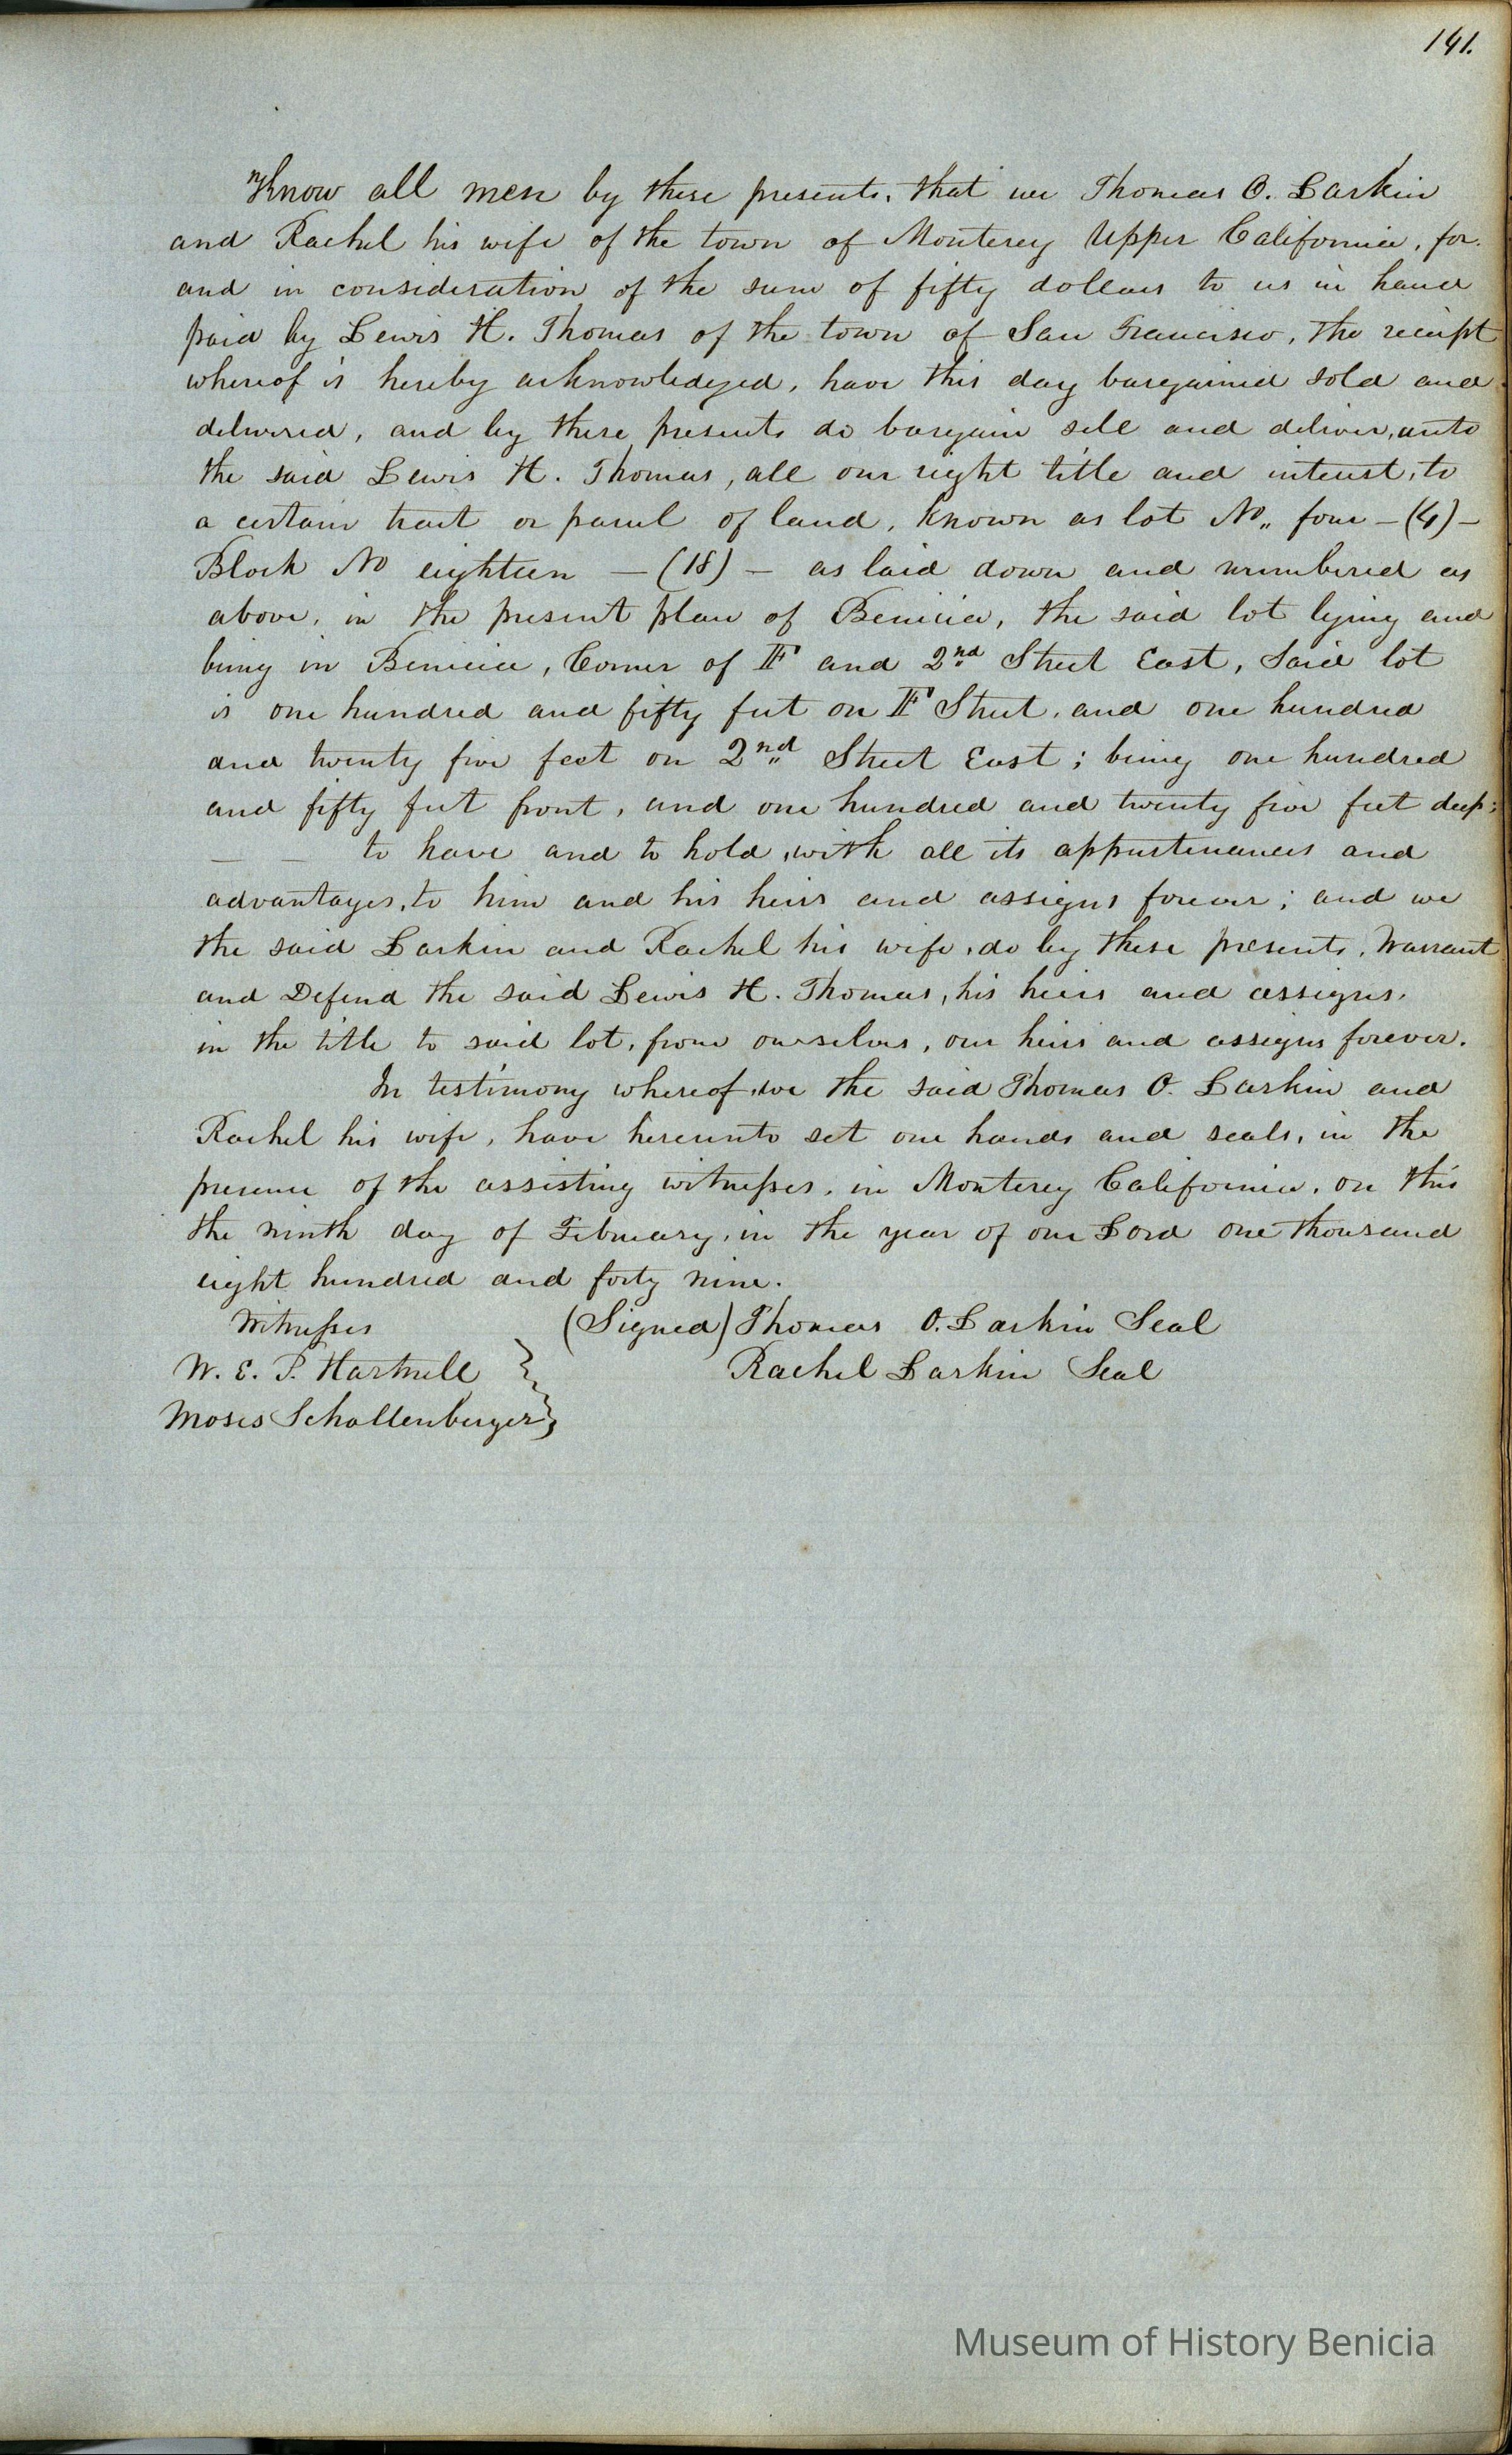 141.
Know all men by these presents, that we Thomas O. Larkin
and Rachel his wife of the town of Monterey Upper California, for
and in consideration of the sum of fifty dollars to us in hand
paid by Lewis H. Thomas of the town of San Francisco, the receipt
whereof is hereby acknowledged, have this day bargained sold and
delivered, and by these presents do bargain sell and deliver, unto
the said Lewis H. Thomas, all our right title and interest, to
a certain tract or parcel of land, known as lot No. four - (4) -
Block No eighteen - (18) - as laid down and numbered as
above, in the present plan of Benicia, the said lot lying and
being in Benicia, Corner of F and 2nd Street East, Said lot
is one hundred and fifty feet on F Street, and one hundred
and twenty five feet on 2nd Street East; being one hundred
and fifty feet front, and one hundred and twenty five feet deep;
— — to have and to hold, with all its appurtenances and
advantages, to him and his heirs and assigns forever; and we
the said Larkin and Rachel his wife, do by these presents, Warrant
and Defend the said Lewis H. Thomas, his heirs and assigns,
in the title to said lot, from ourselves, our heirs and assigns forever.
In testimony whereof, we the said Thomas O. Larkin and
Rachel his wife, have hereunto set our hands and seals, in the
presence of the assisting witnesses, in Monterey California, on this
the ninth day of February, in the year of our Lord one thousand
eight hundred and forty nine.
Witnesses (Signed) Thomas O. Larkin Seal
W. E. P. Hartnell } Rachel Larkin Seal
Moses Schallenberger }
Museum of History Benicia